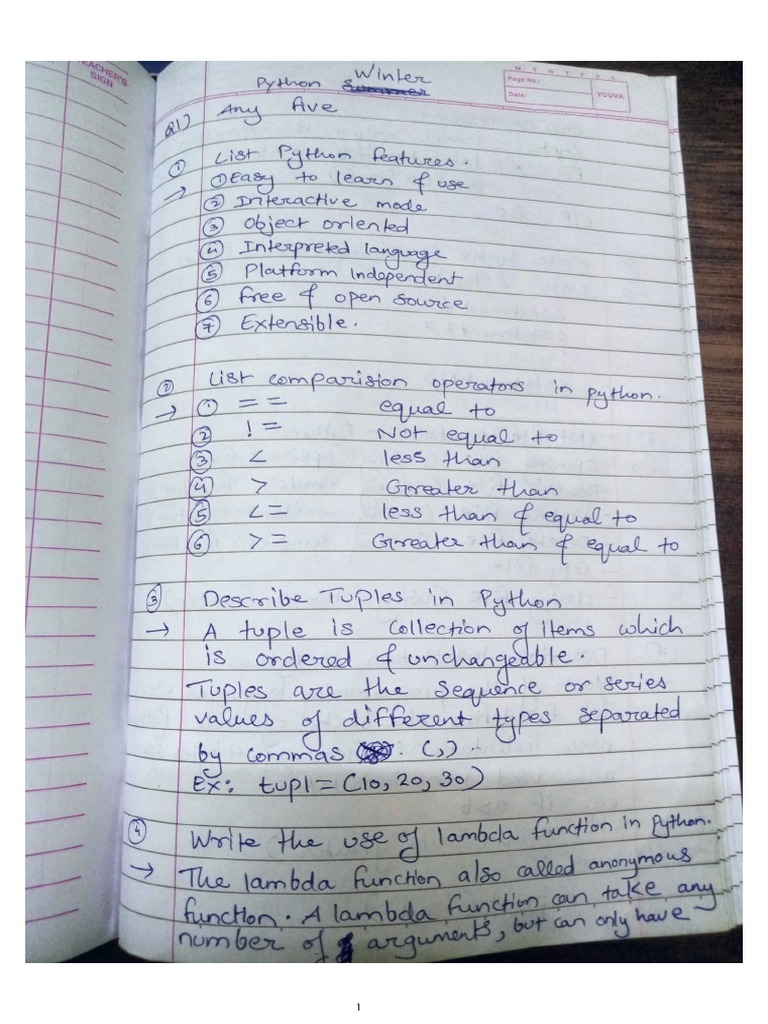 TEACHER'S
SIGN
M T W T F S S
Page No.:
Date:
YOUVA
Python Summer Winter
Q1) Any five
① List Python features.
→ ① Easy to learn & use
② Interactive mode
③ Object oriented
④ Interpreted language
⑤ Platform Independent
⑥ Free & open source
⑦ Extensible.
② List comparision operators in python.
→ ① == equal to
② != Not equal to
③ < less than
④ > Greater than
⑤ <= less than & equal to
⑥ >= Greater than & equal to
③ Describe Tuples in Python
→ A tuple is collection of items which
is ordered & unchangeable.
Tuples are the sequence or series
values of different types separated
by commas (,).
Ex: tup1 = (10, 20, 30)
④ Write the use of lambda function in Python.
→ The lambda function also called anonymous
function. A lambda function can take any
number of arguments, but can only have
1